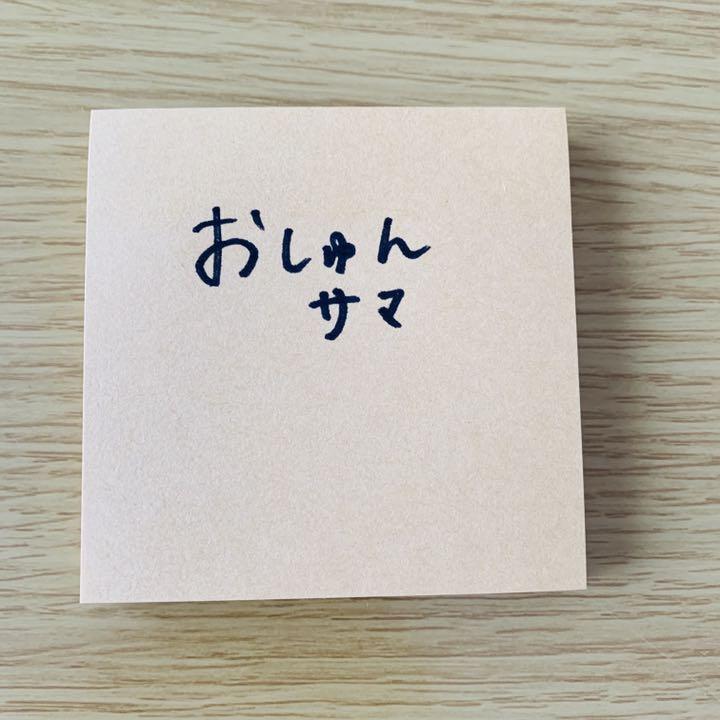 おしゅん
サマ